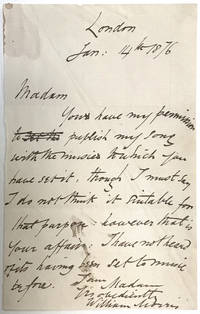 London
Jan: 14th 1876
Madam
You have my permission
to publish my song
with the music to which you
have set it, though I must say
I do not think it suitable for
that purpose: however that is
your affair: I have not heard
of its having been set to music
before.
I am Madam
Yr obedient St
William Morris